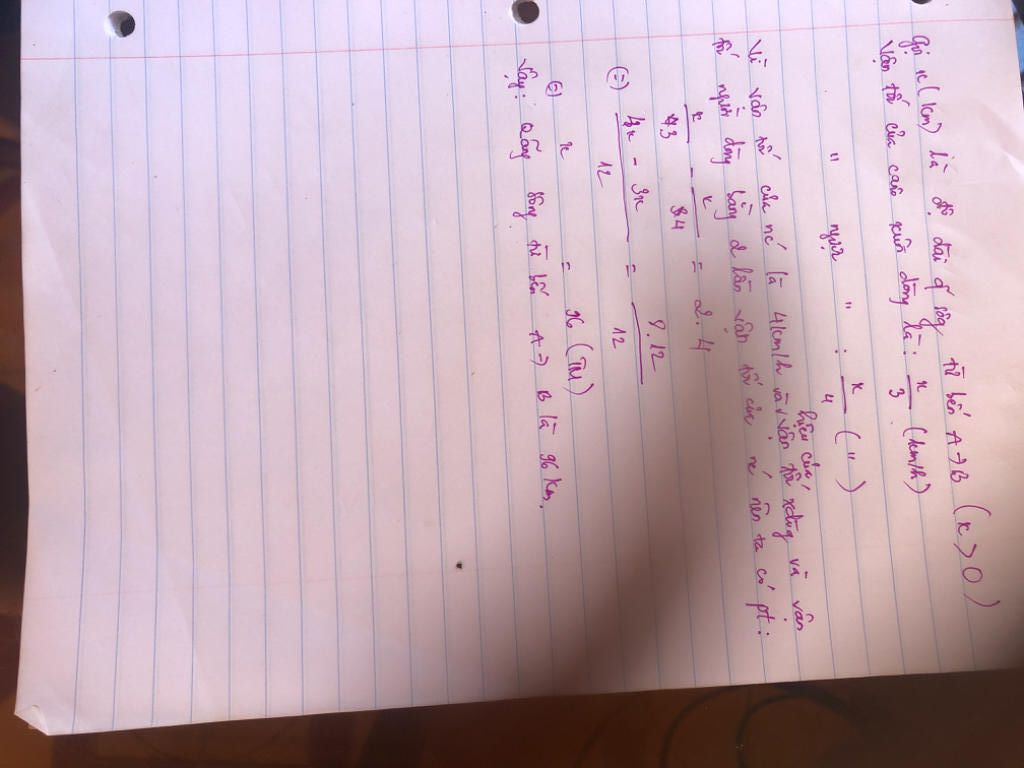 Gọi x (km) là độ dài q sông từ bến A → B (x > 0)
Vận tốc của cano xuôi dòng là: x/3 (km/h)
" ngược " : x/4 ( " )
Vì vận tốc của nc là 4km/h và hiệu của vận tốc xdòng và vận
tốc ngược dòng bằng 2 lần vận tốc của nc nên ta có pt:
x/3 - x/4 = 2.4
(=) 4x - 3x / 12 = 8.12 / 12
(=) x = 96 (TM)
Vậy: Quãng sông từ bến A → B là 96 km.